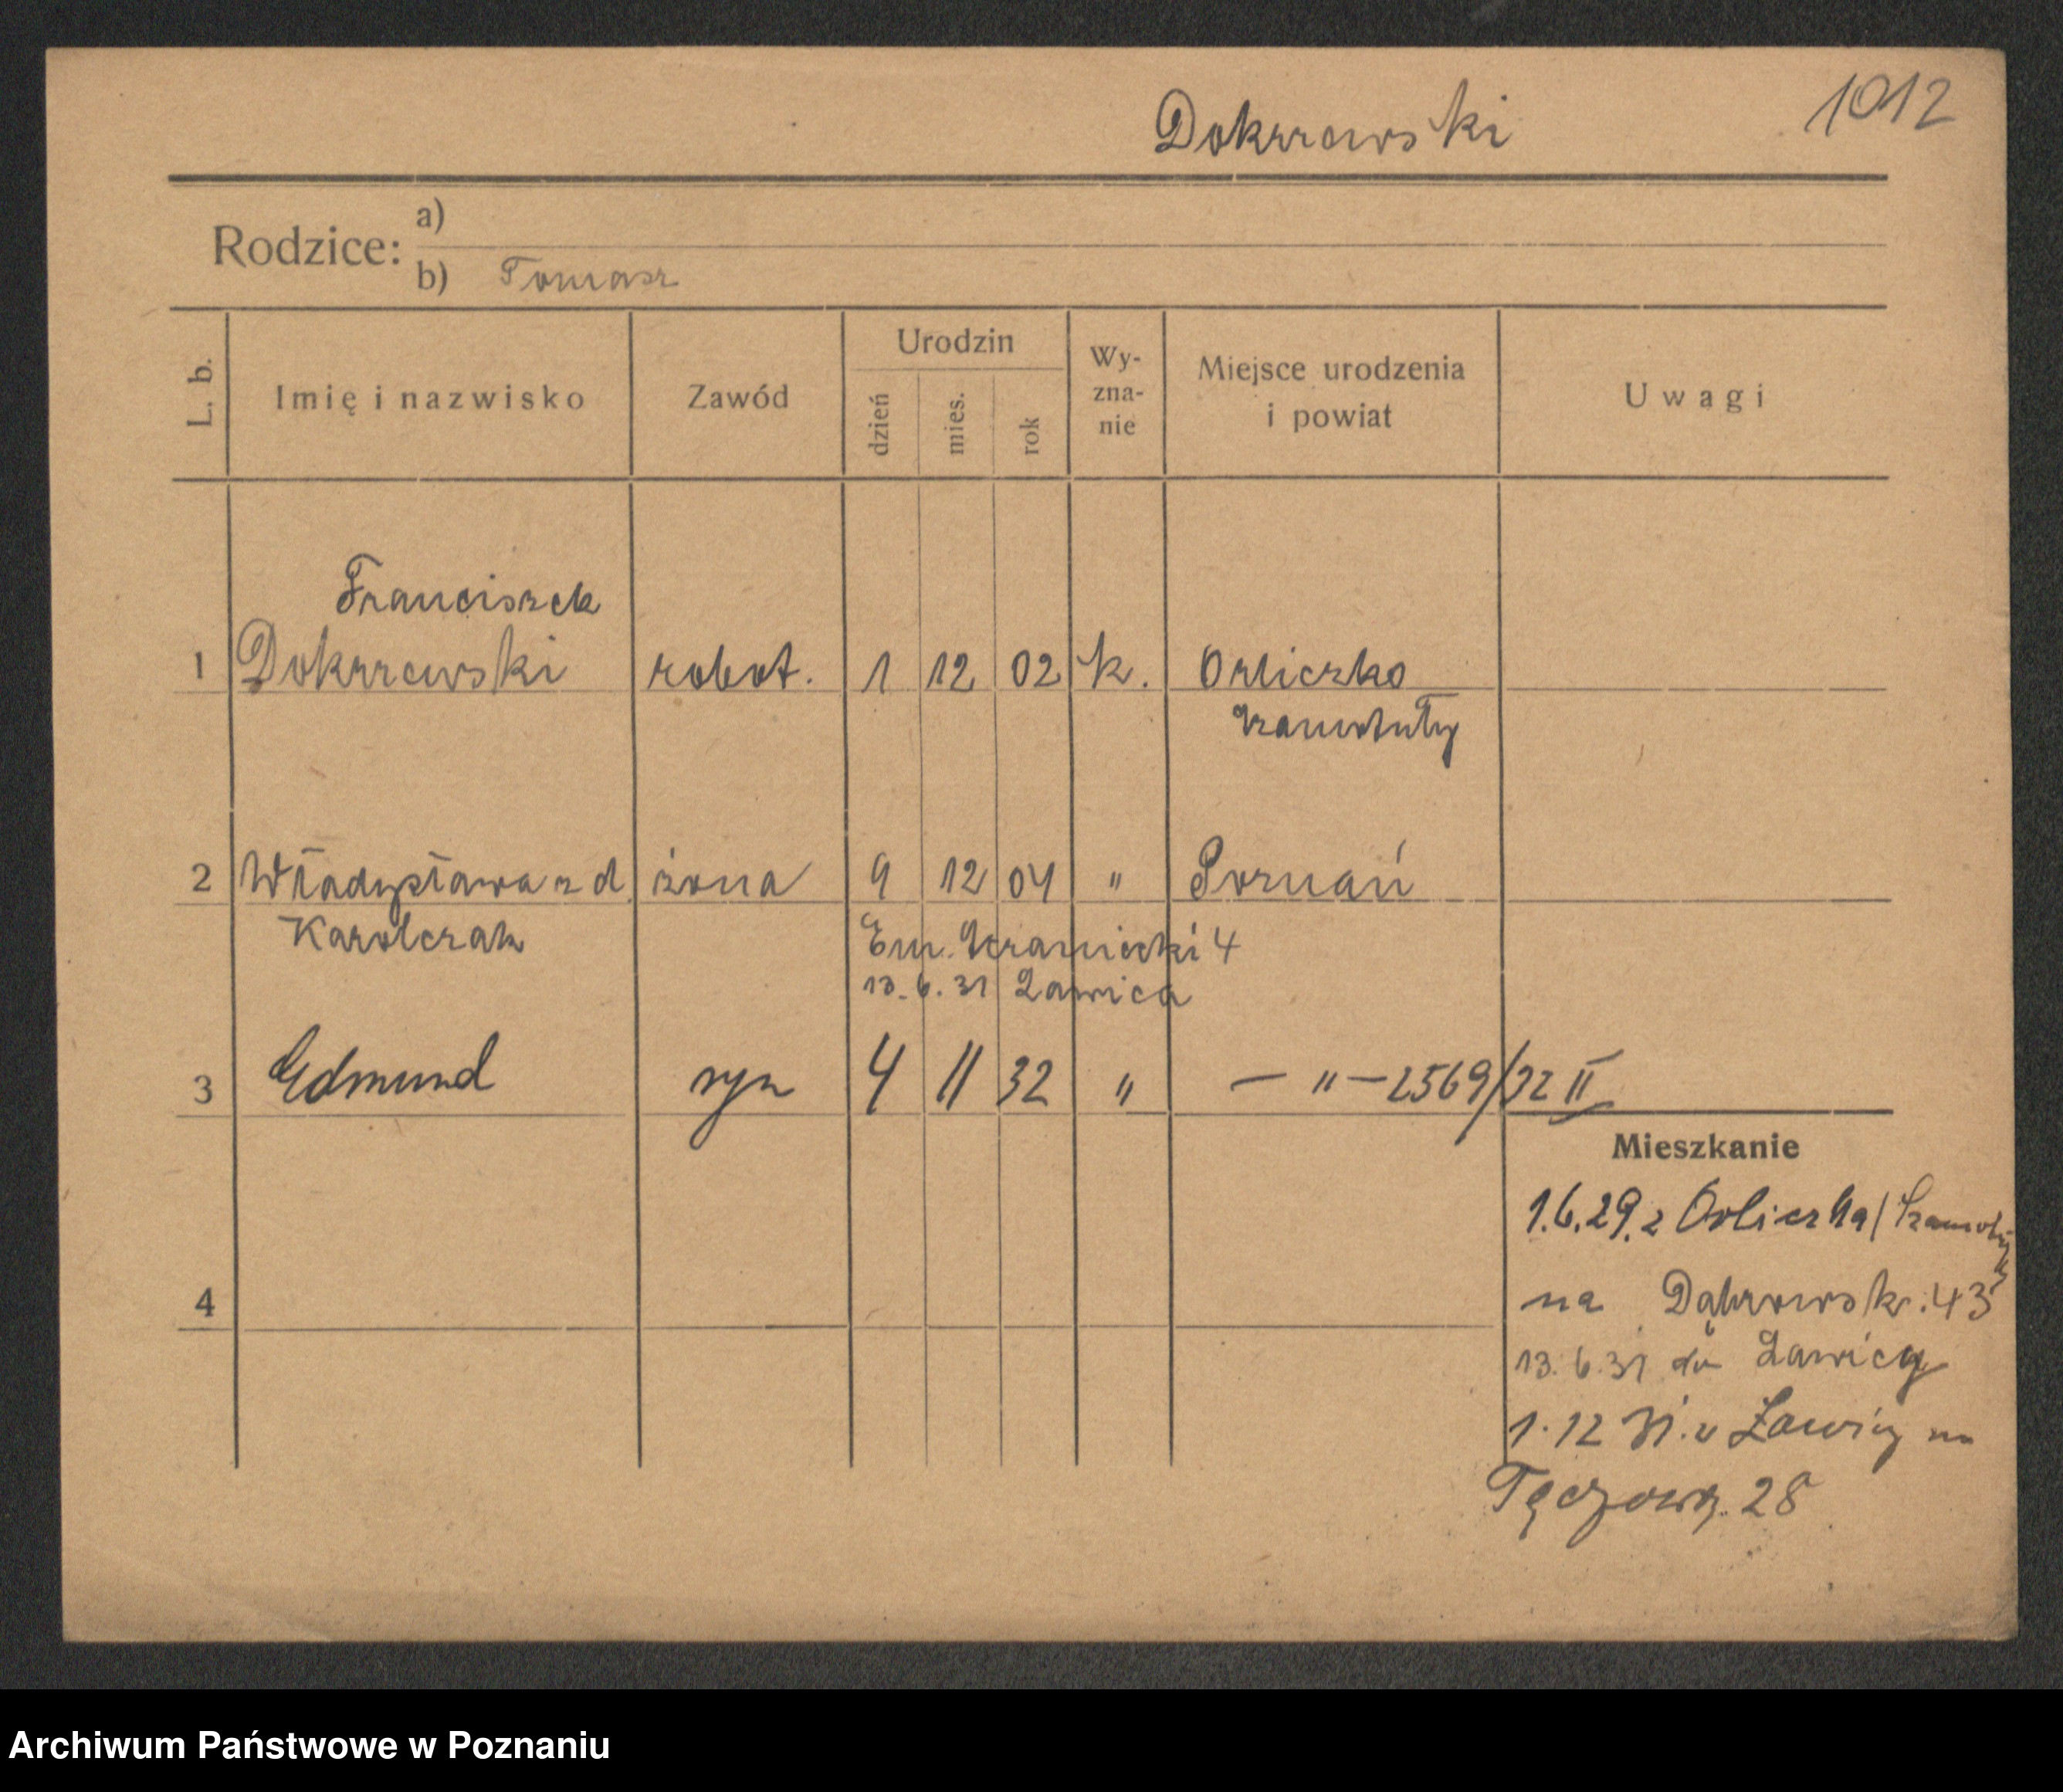 Dokrzewski
1012
Rodzice: a)
b) Tomasz
L. b.
Imię i nazwisko
Zawód
Urodzin
dzień
mies.
rok
Wy-
zna-
nie
Miejsce urodzenia
i powiat
Uwagi
Franciszek
1 Dokrzewski robot. 1 12 02 k. Orliczko
Szamotuły
2 Władysława z d. żona 9 12 04 " Poznań
Karolczak
Em. Sczaniecki 4
13.6.31 Ławica
3 Edmund syn 4 11 32 " — " — 2569/32 II
Mieszkanie
1.6.29. z Orliczka / Szamotuły
4
na Dąbrowsk. 43
13.6.31 do Ławicy
1.12 31. z Ławicy na
Tęczową. 28
Archiwum Państwowe w Poznaniu